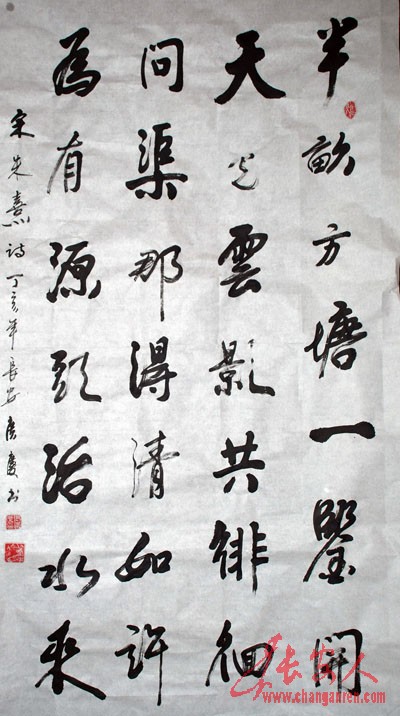 半畝方塘一鑒開
天光雲影共徘徊
問渠那得清如許
為有源頭活水來
宋朱熹詩丁亥年長安書
长安人
www.changanren.com